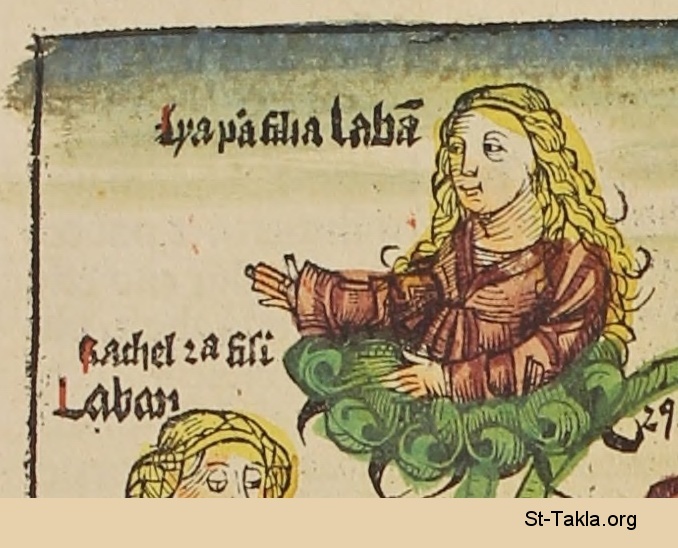 Lya pa filia Labā
Rachel 2a fili
Laban
29.
St-Takla.org